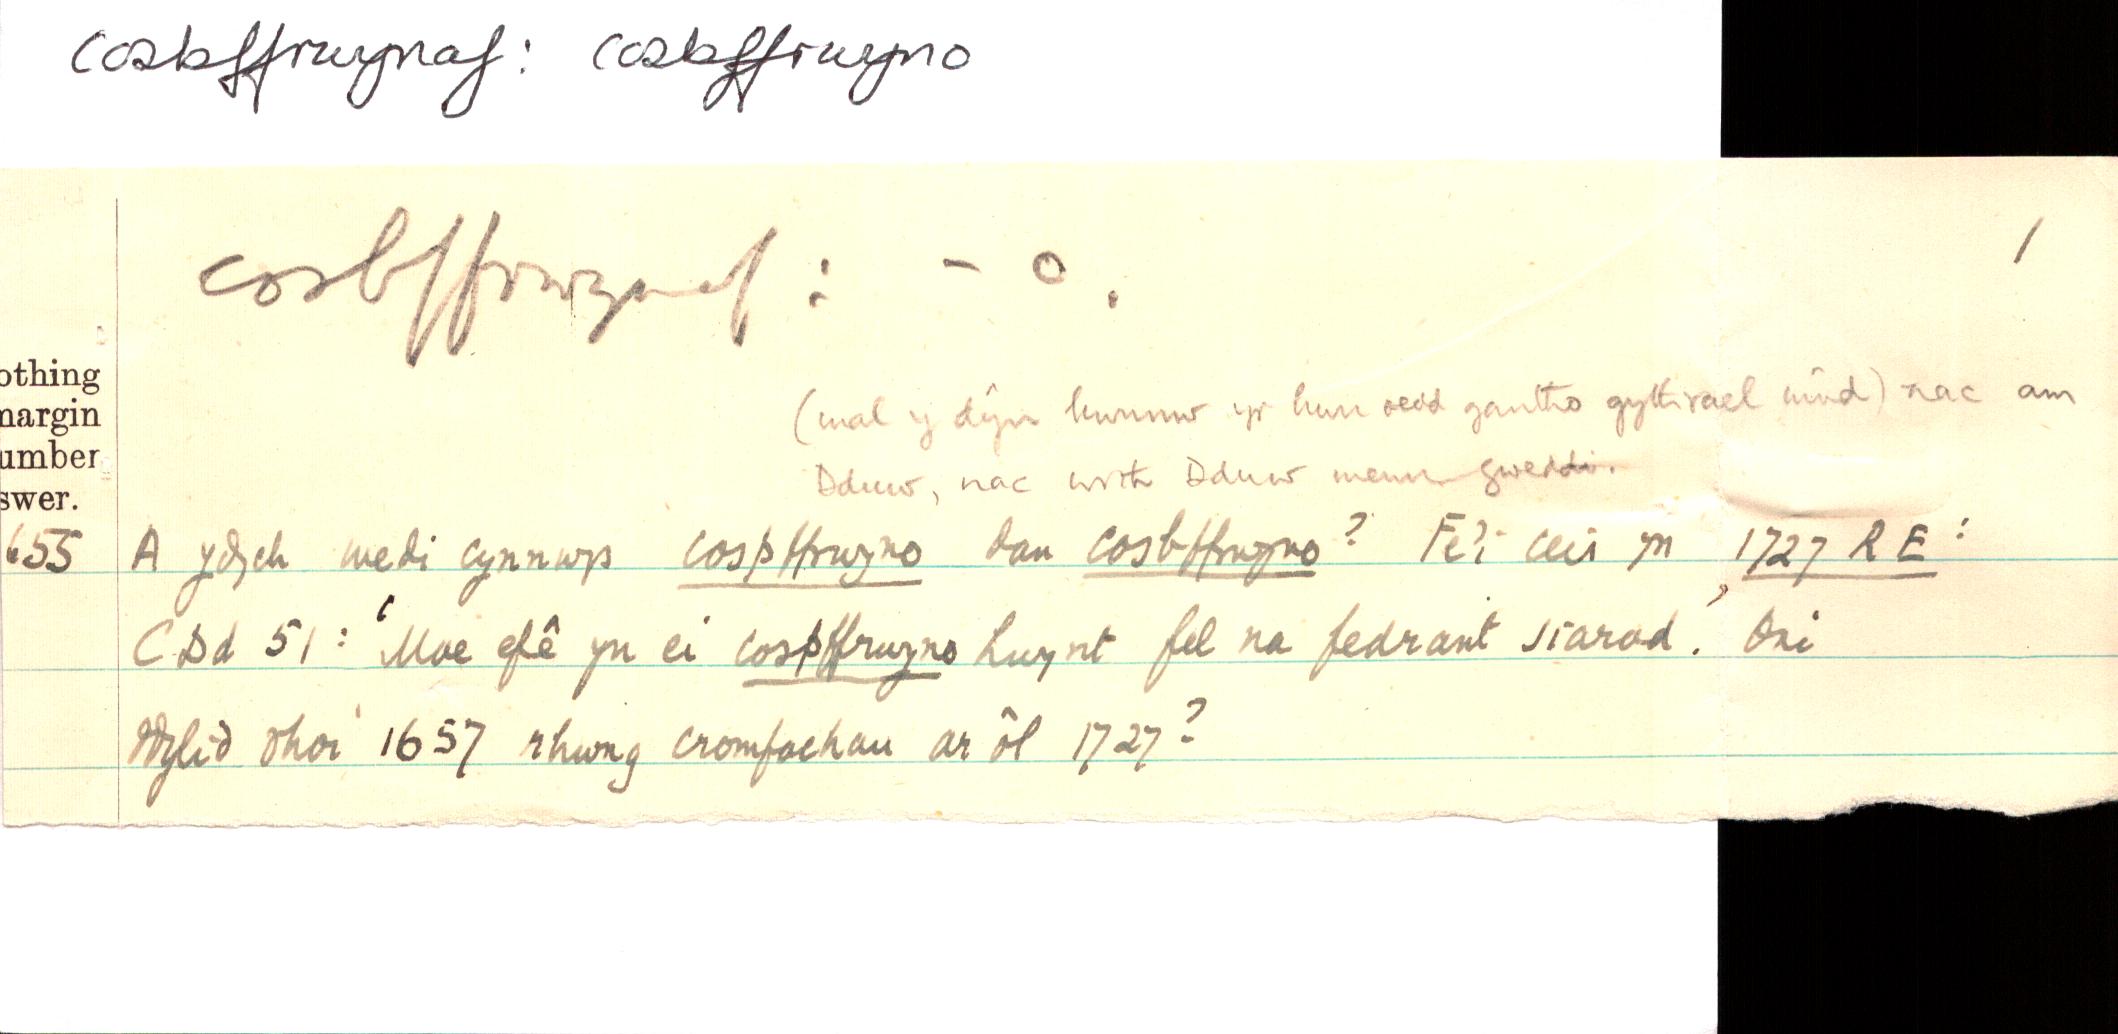 cosbffrwynaf: cosbffrwyno
cosbffrwynaf: -o.
/
(mal y dŷn hwnnw yr hwn oedd gantho gythrael mûd) nac am
Dduw, nac wrth Dduw mewn gweddi.
othing
margin
umber
swer.
655 A ydych wedi cynnwys cospffrwyno dan cosbffrwyno? Fe'i ceir yn 1727 R E:
C Dd 51: 'Mae efê yn ei cospffrwyno hwynt fel na fedrant siarad.' Oni
ddylid rhoi 1657 rhwng cromfachau ar ôl 1727?